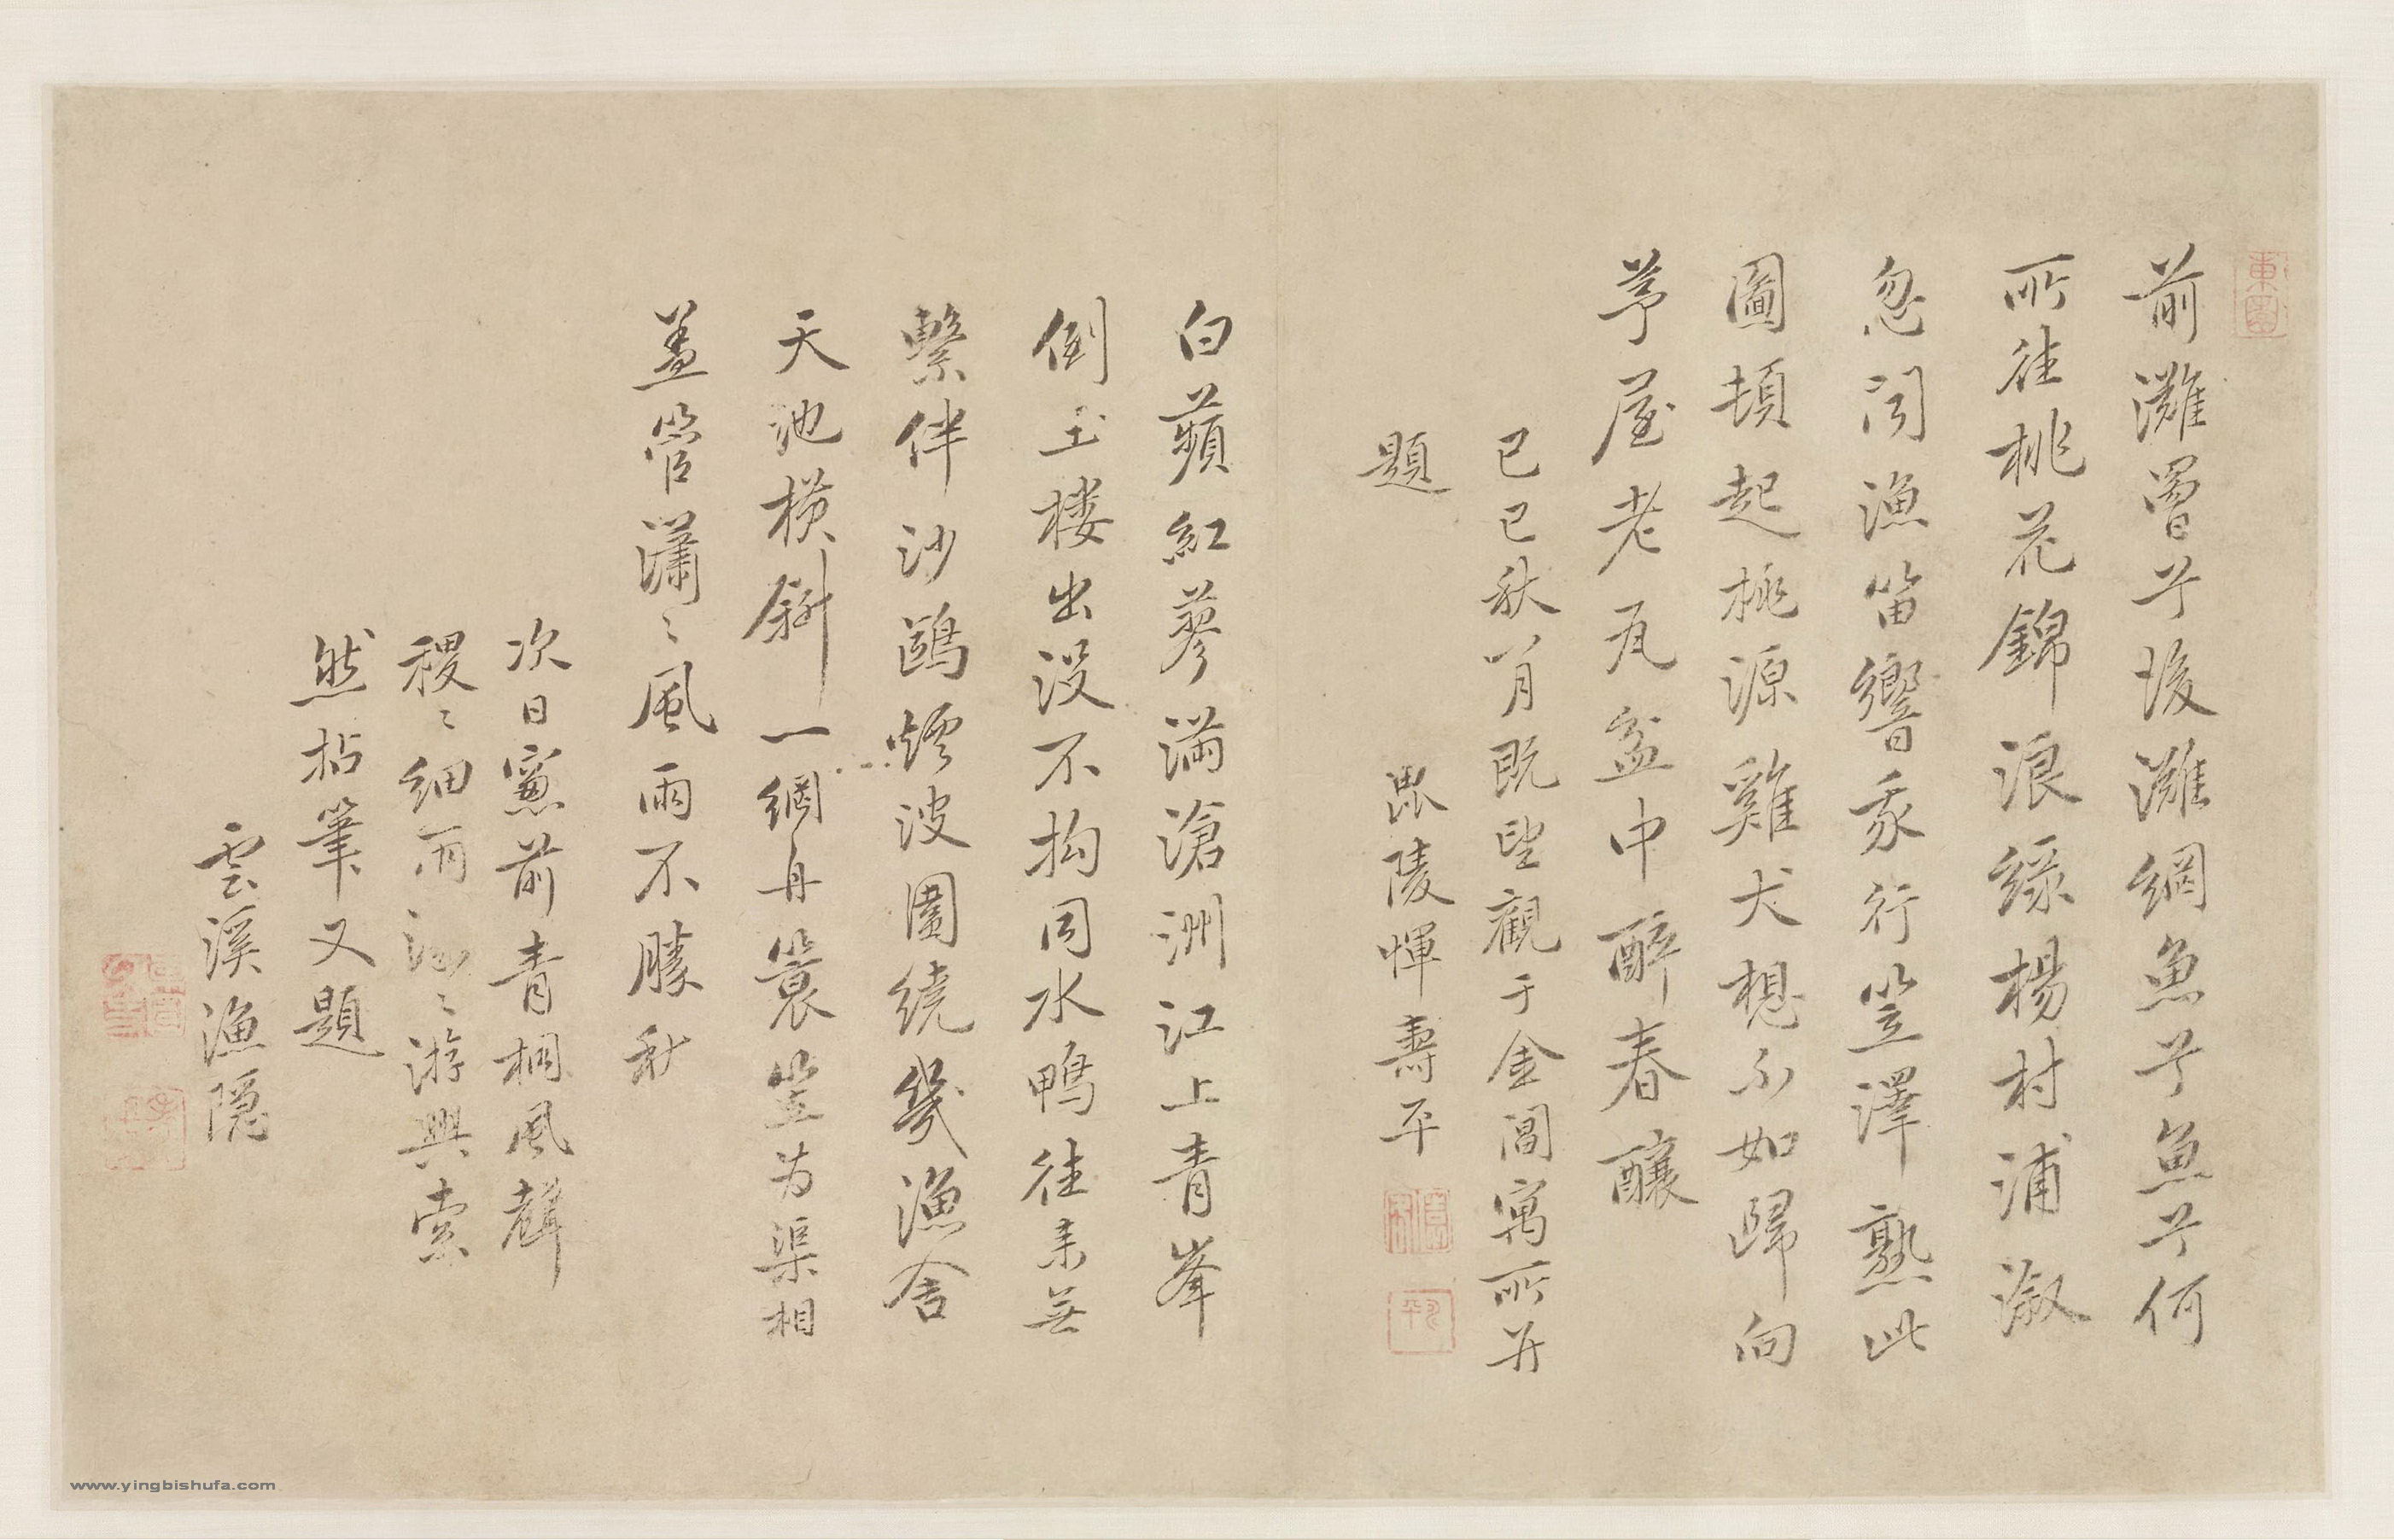 東園
前灘罾兮後灘網魚兮魚兮何
所往桃花錦浪綠楊村浦溆
忽聞漁笛響我行笠澤熟此
圖頓起桃源雞犬想不如歸向
茅屋老瓦盆中醉春釀
己巳秋八月既望觀于金閶寓所并
題
毘陵惲壽平
白蘋紅蓼滿滄洲江上青峯
倒玉樓出没不拘同水鴨往来無
繫伴沙鷗煙波圍繞幾漁舍
天池橫斜一網舟簑笠为渠相
盖管瀟〻風雨不勝秋
次日窻前青桐風聲
稷〻細雨〻游興索
然拈筆又題
雲溪漁隱
www.yingbishufa.com